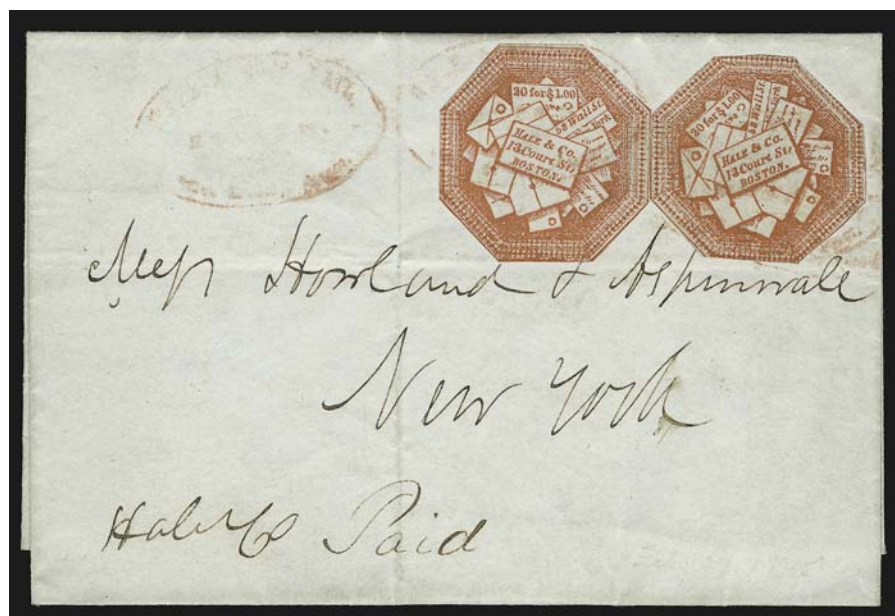 20 for $1.00
58 Wall St.
HALE & CO.
13 Court Str
BOSTON.
20 for $1.00
58 Wall St.
HALE & CO.
13 Court Str
BOSTON.
Mess Howland & Aspinwale
New York
Hale & Co Paid